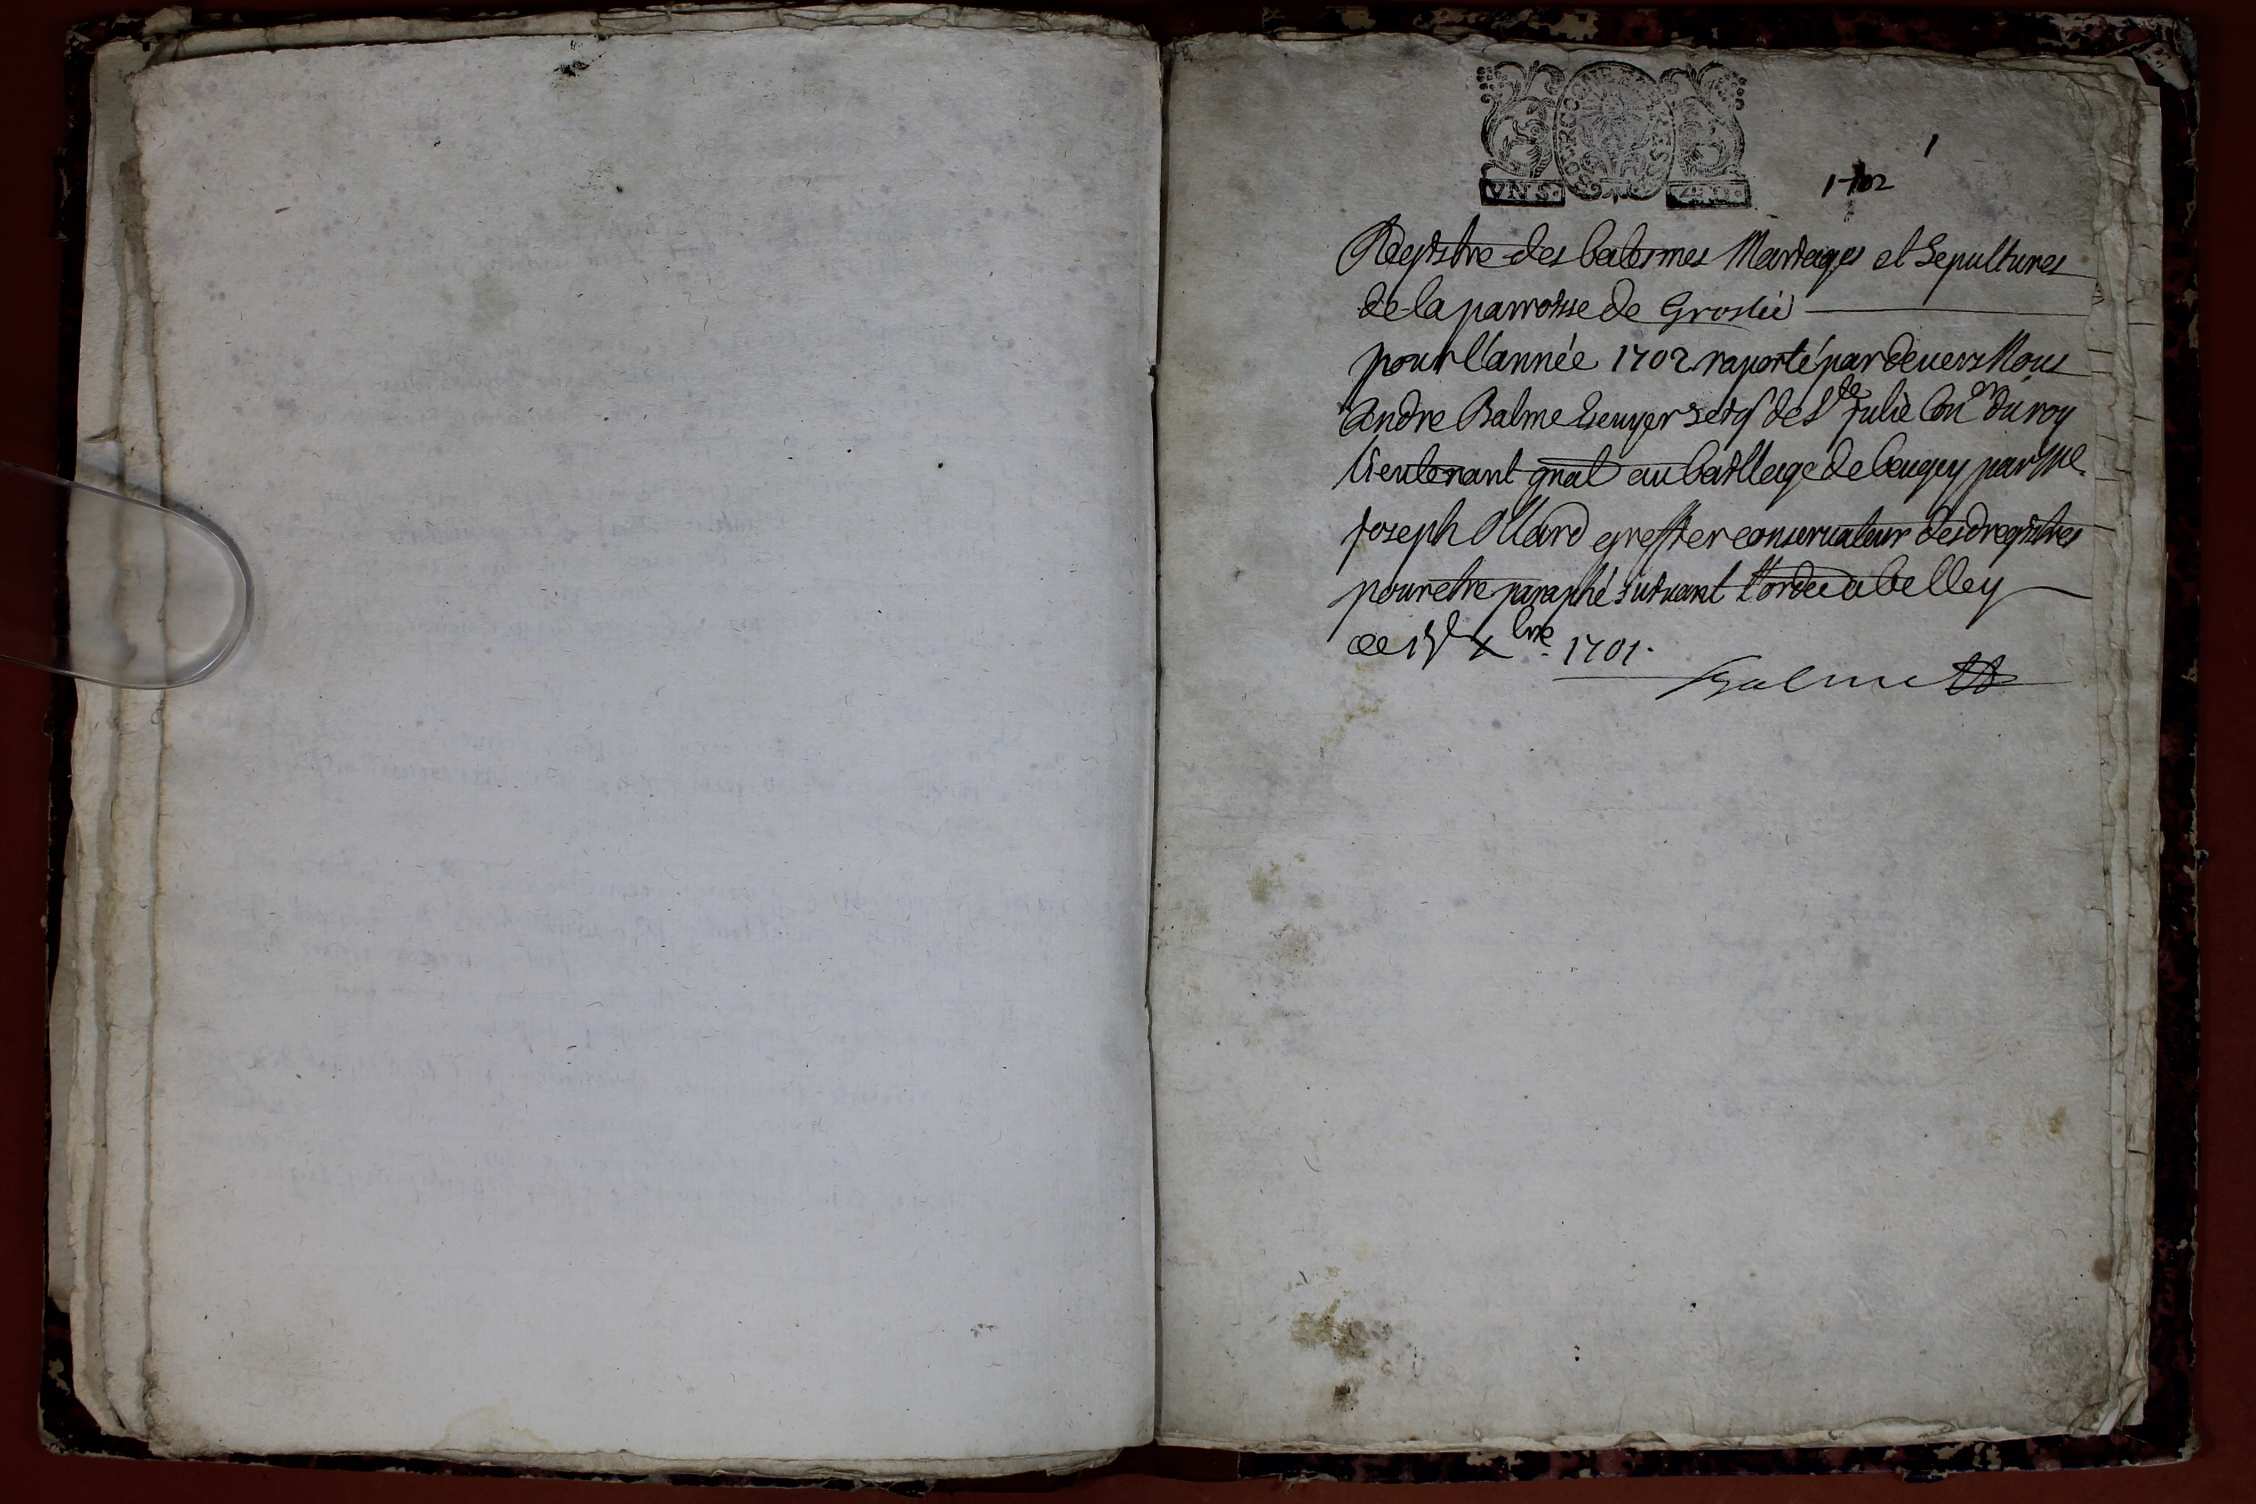 1
1702
VN S.
Registre des batesmes Mariages et Sepultures
de la parroisse de Groslée
pour l'année 1702 raporté par devers Nous
Andre Balme Escuyer seigr de Ste Julie Conr du roy
lieutenant gnal au bailliage de beugey par Me
Joseph Ollard greffier conservateur desd registres
pour etre paraphé suivant l'ordce a belley
ce 15 Xbre 1701.
Balme